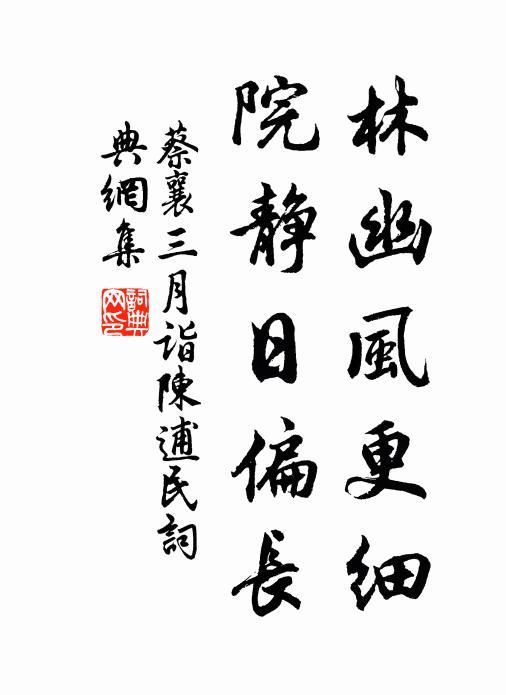 林幽風更細
院静日偏長
蔡襄三月诣陳逋民詞
典網集
詞典
网印